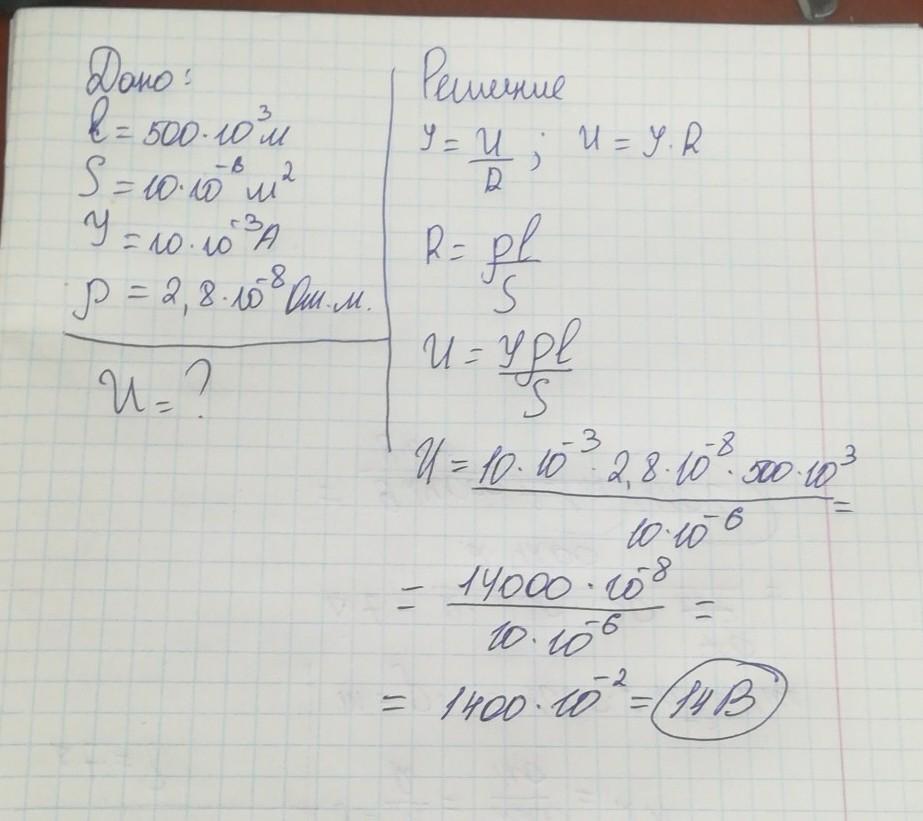 Дано:
l = 500·10³ м
S = 10·10⁻⁶ м²
У = 10·10⁻³ А
ρ = 2,8·10⁻⁸ Ом·м.
U = ?
Решение
У = U/R ; U = У·R
R = ρl/S
U = Уρl/S
U = 10·10⁻³·2,8·10⁻⁸·500·10³ / 10·10⁻⁶ =
= 14000·10⁻⁸ / 10·10⁻⁶ =
= 1400·10⁻² = 14В